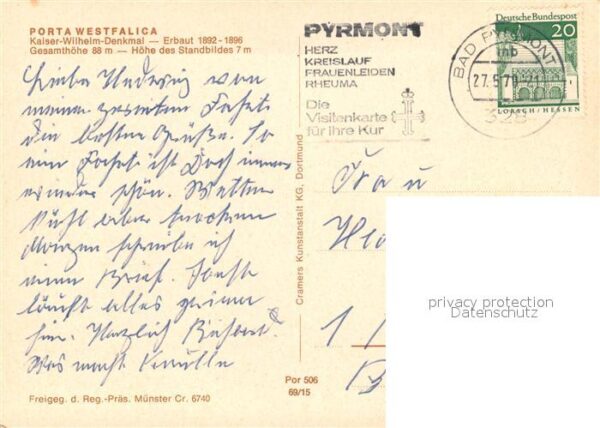 PORTA WESTFALICA
Kaiser-Wilhelm-Denkmal — Erbaut 1892-1896
Gesamthöhe 88 m — Höhe des Standbildes 7 m
Liebe Hedwig von
meiner gesamten Fahrt
die besten Grüße. So
eine Fahrt ist doch immer
wieder schön. Wetter
kühl aber trocken
Morgen schreibe ich
einen Brief. Sonst
läuft alles prima
hin. Herzlich
Was macht
Freigeg. d. Reg.-Präs. Münster Cr. 6740
Cramers Kunstanstalt KG, Dortmund
Por 506
69/15
PYRMONT
HERZ
KREISLAUF
FRAUENLEIDEN
RHEUMA
Die
Visitenkarte
für Ihre Kur
BAD PYRMONT
27.5.70
328
Deutsche Bundespost
20
LORSCH/HESSEN
Frau
privacy protection
Datenschutz